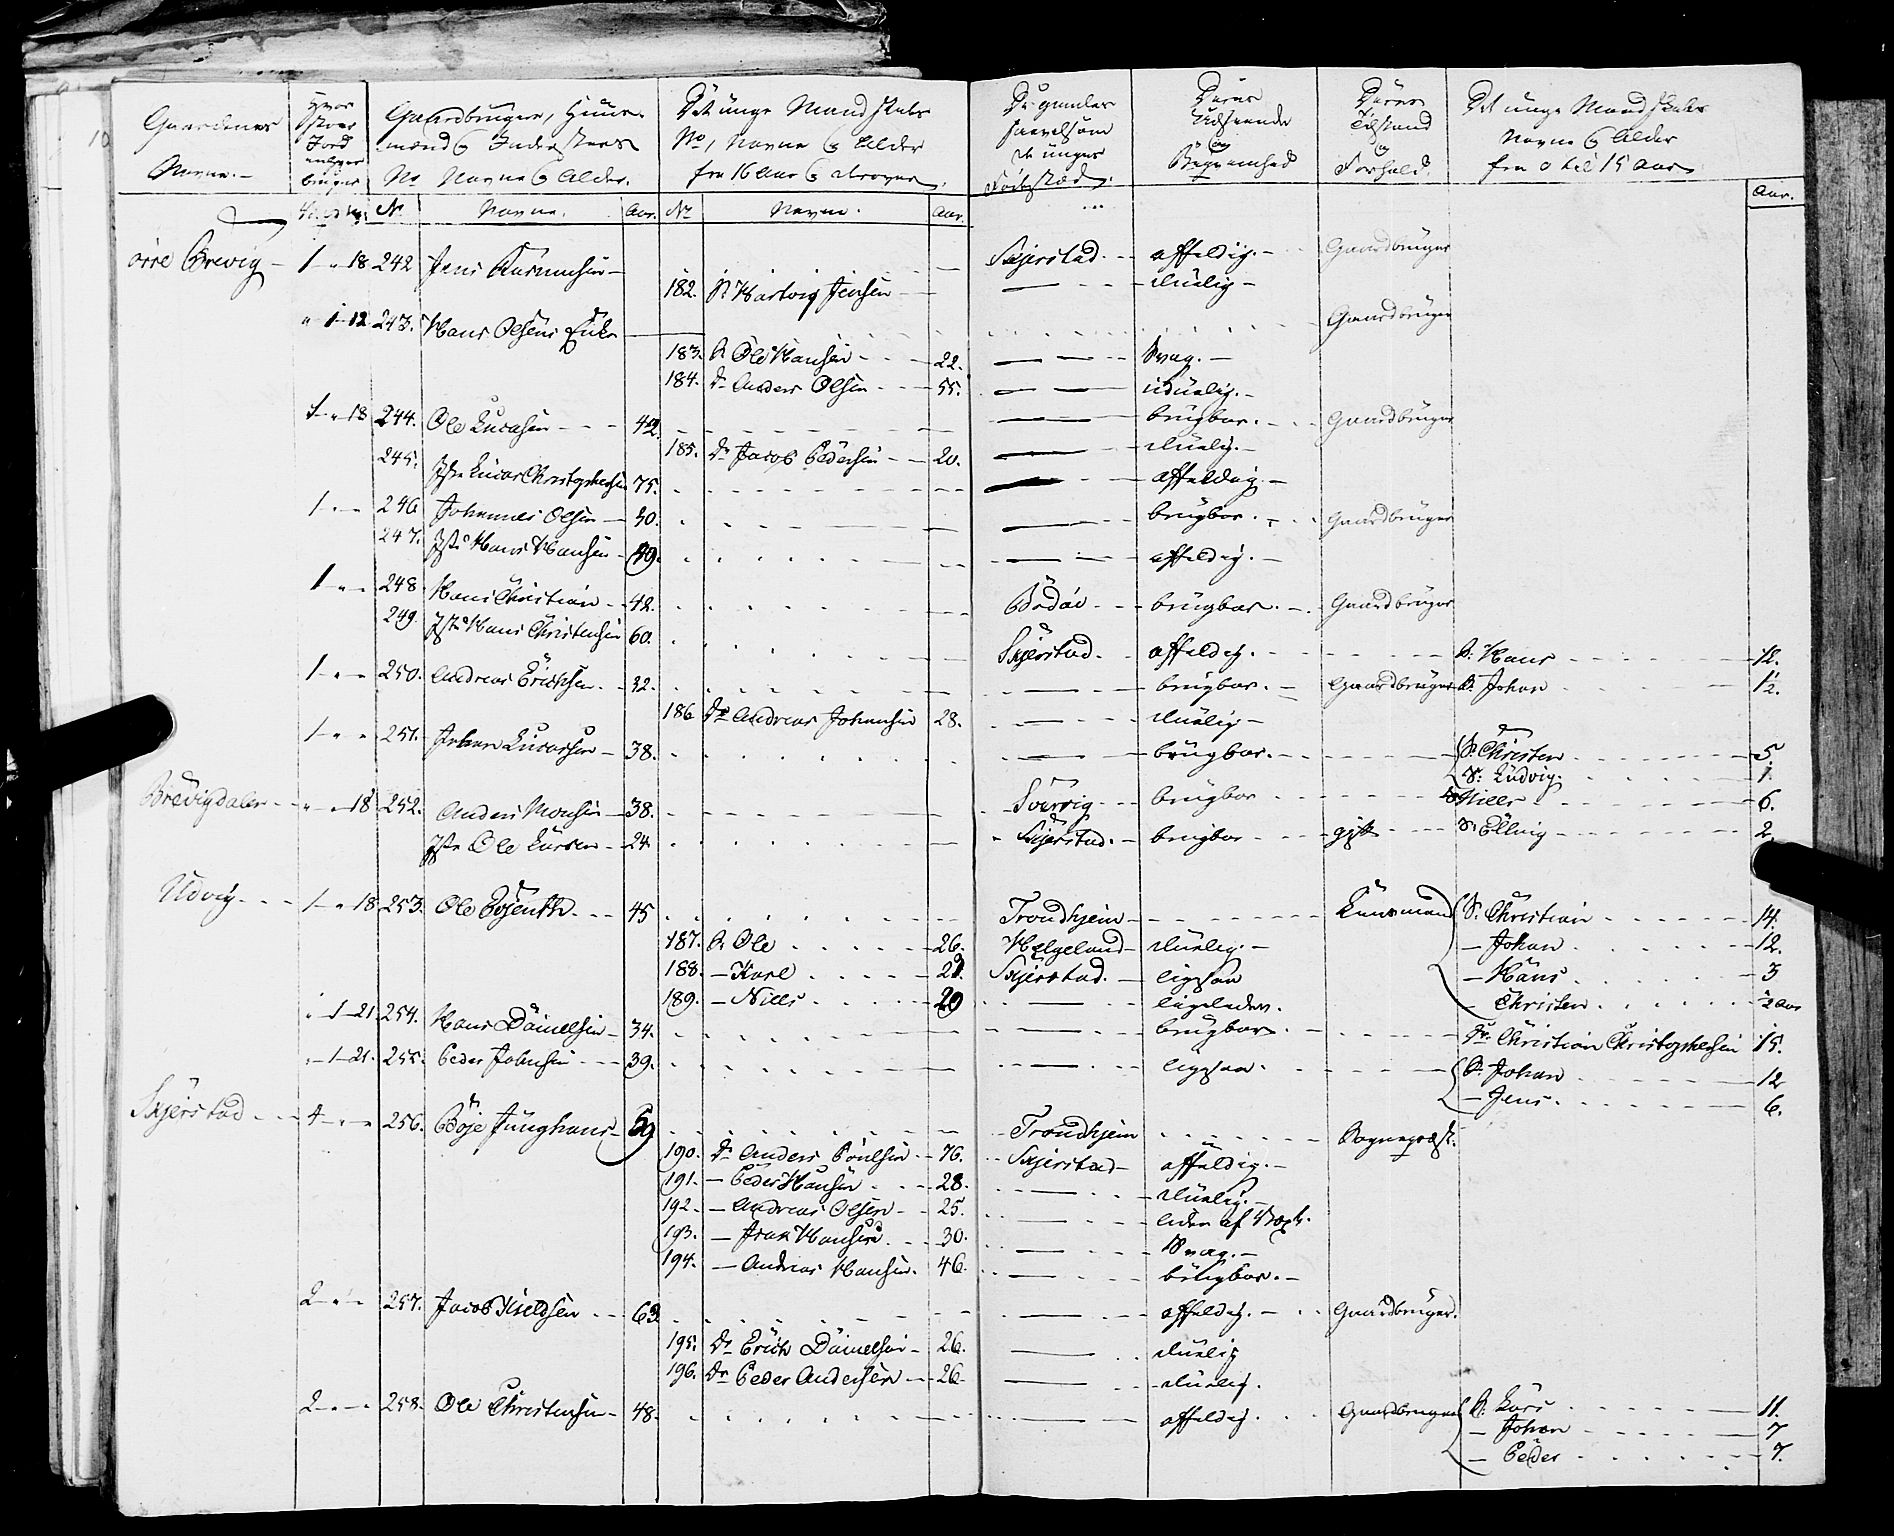 Gaardenes Navne.
Hvor stoer Jord enhver bruger
Gaardbrugere, Huusmænd & Inderster No Navne & Alder.
Det unge Mandskabs No, Navne & Alder fra 16 Aar & derover.
De gamles saavelsom de unges Födestæd.
Deres Udseende og Beqvemhed
Deres Tilstand og Forhold.
Det unge Mandskabs Navne & Alder fra 0 til 15 Aar
No Navne. Aar. No Navne. Aar. Aar.
Brevig 1 " 18 242 Jens Rasmusen Skjerstad. affeldig. Gaardbruger
182. S. Hartvig Jensen duelig
" 1 12 243. Hans Olsens Enke Gaardbruger
183. S. Ole Hansen 22. Svag.
184. Dr Anders Olsen 55. uduelig.
1 " 18 244. Ole Lucasen 42. brugbar. Gaardbruger
185. Dr Jacob Pedersen 20. duelig.
245. Jste Lucas Christophersen 75. affeldig.
1 " " 246 Johannes Olsen 30. brugbar. Gaardbruger
247. Jste Hans Hansen affeldig.
1 " " 248 Hans Christian 42. Bodöe brugbar. Gaardbruger
249. Jste Hans Christensen 60. Skjerstad. affeldig. S. Hans 12.
1 " " 250. Andreas Erichsen 32. brugbar. Gaardbruger S. Johan 1½.
186 Dr Andreas Johansen 28. duelig
1 " " 251. Johan Lucassen 38. brugbar. S. Christen 5.
S. Ludvig. 1.
Brevigdalen " " 18 252. Anders Monsen 38. brugbar Nills 6.
Jste Ole Larsen 24 Skjerstad. brugbar gift S. Elling 2
Udvig 1 " 18 253. Ole 45 Trondhjem S. Christian 14.
187. S. Ole 26. Helgeland duelig. — Johan 12.
188. — Karl Skjerstad. ligesaa — Hans 3
189. — Nills 20 ligeledes. — Christen ½ aar
" 1 21. 254. Hans Danielsen 34. brugbar Christian Christophersen 15.
" 1 21. 255. Peder Johnsen 39. ligesaa. S. Johan 12
— Jens. 6.
Skjerstad 4 " " 256. Böje Junghans Trondhjem Sognepræst.
190. Dr Anders Poulsen 76. Skjerstad affeldig.
191. — Peder Hansen 28. duelig.
192. — Andreas Olsen 25. liden af Væxt.
193. — Isak Hansen 30. Svag.
194. — Andreas Hansen. 46. brugbar.
2 " " 257. Jacob Kieldsen 63 affeldig. Gaardbruger.
195. Dr Erich Danielsen 26. duelig
196. Dr Peder Andersen 26 duelig.
2 " " 258. Ole Christensen 48. affeldig Gaardbruger S. Lars 11.
— Johan 7
— Peder 7.